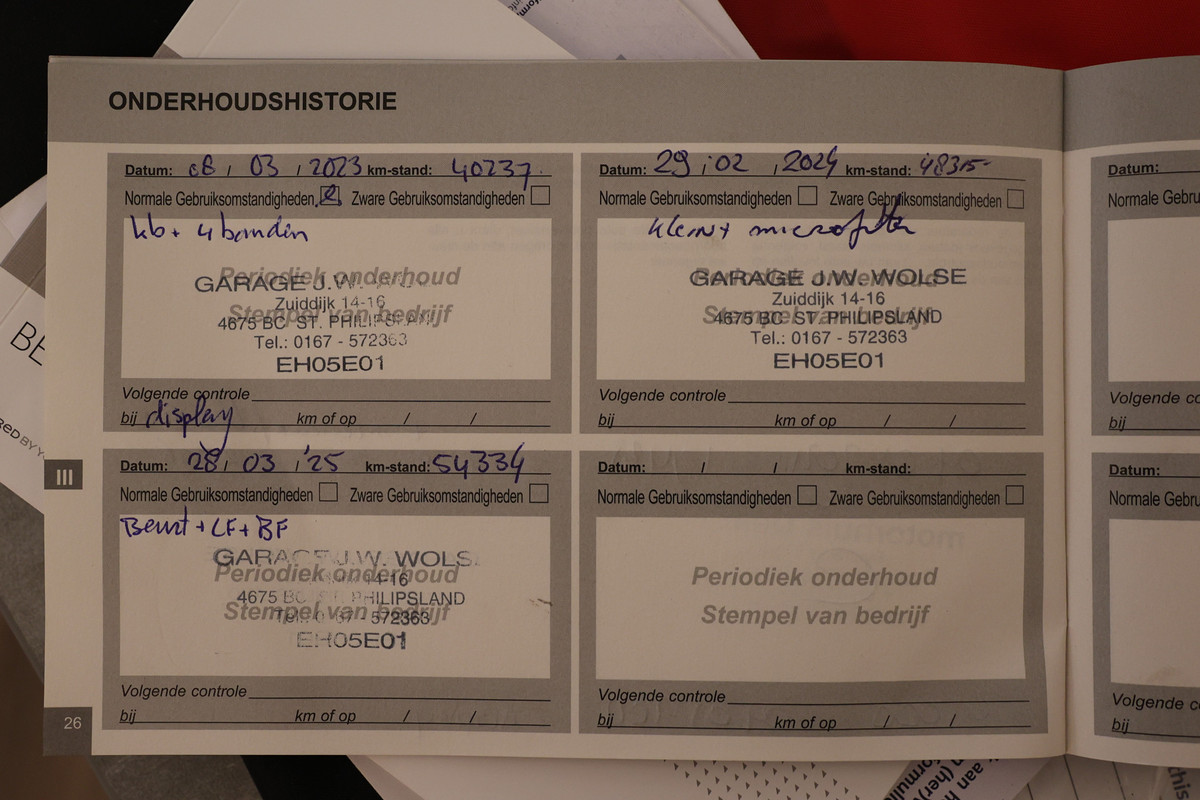 ONDERHOUDSHISTORIE
Datum: 08 / 03 / 2023 km-stand: 40237
Normale Gebruiksomstandigheden Zware Gebruiksomstandigheden
kb + 4 banden
Periodiek onderhoud
Stempel van bedrijf
GARAGE J.W.
Zuiddijk 14-16
4675 BC ST. PHILIPSLAN
Tel.: 0167 - 572363
EH05E01
Volgende controle
bij display km of op / /
Datum: 29 / 02 / 2024 km-stand: 48315-
Normale Gebruiksomstandigheden Zware Gebruiksomstandigheden
microfilter
Periodiek onderhoud
Stempel van bedrijf
GARAGE J.W. WOLSE
Zuiddijk 14-16
4675 BC ST. PHILIPSLAND
Tel.: 0167 - 572363
EH05E01
Volgende controle
bij km of op / /
Datum: 28 / 03 / '25 km-stand: 54334
Normale Gebruiksomstandigheden Zware Gebruiksomstandigheden
+ LF + BF
Periodiek onderhoud
Stempel van bedrijf
GARAGE J.W. WOLS
14-16
4675 BC ST. PHILIPSLAND
572363
EH05E01
Volgende controle
bij km of op / /
Datum: / / km-stand:
Normale Gebruiksomstandigheden Zware Gebruiksomstandigheden
Periodiek onderhoud
Stempel van bedrijf
Volgende controle
bij km of op / /
Datum:
Normale Gebru
Volgende c
bij
Datum:
Normale Gebru
Volgende c
bij
III
26
BE